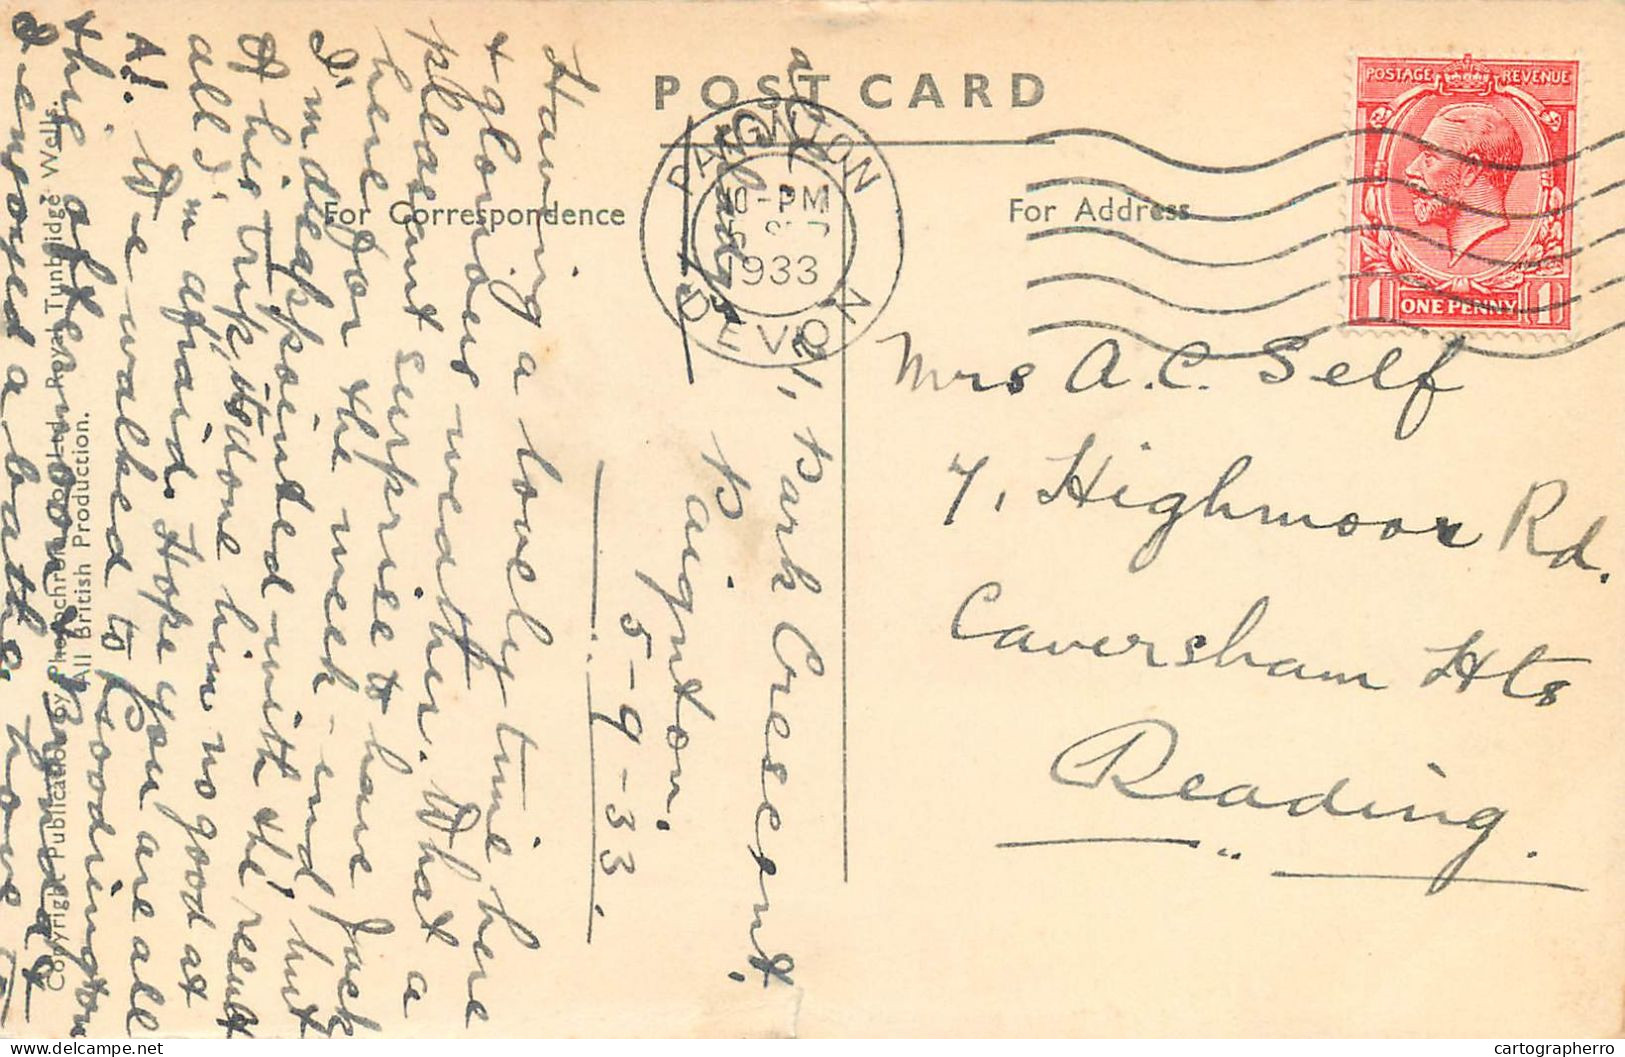 POST CARD
For Correspondence
For Address
PAIGNTON
DEVON
10-PM
1933
POSTAGE REVENUE
1 ONE PENNY 1
Mrs A.C. Self
7, Highmoor Rd.
Caversham Hts
Reading.
Park Crescent,
Paignton.
5-9-33.
Having a lovely time here
& glorious weather. What a
pleasant surprise to have Jack
here for the week-end, but
I'm disappointed with the result
of his trip, it's done him no good at
all I'm afraid. Hope you are all
A1. We walked to Goodrington
this afternoon
I enjoyed a bathe, home to
Copyright Publication by Photochrom Co. Ltd., Royal Tunbridge Wells.
All British Production.
cartographerro